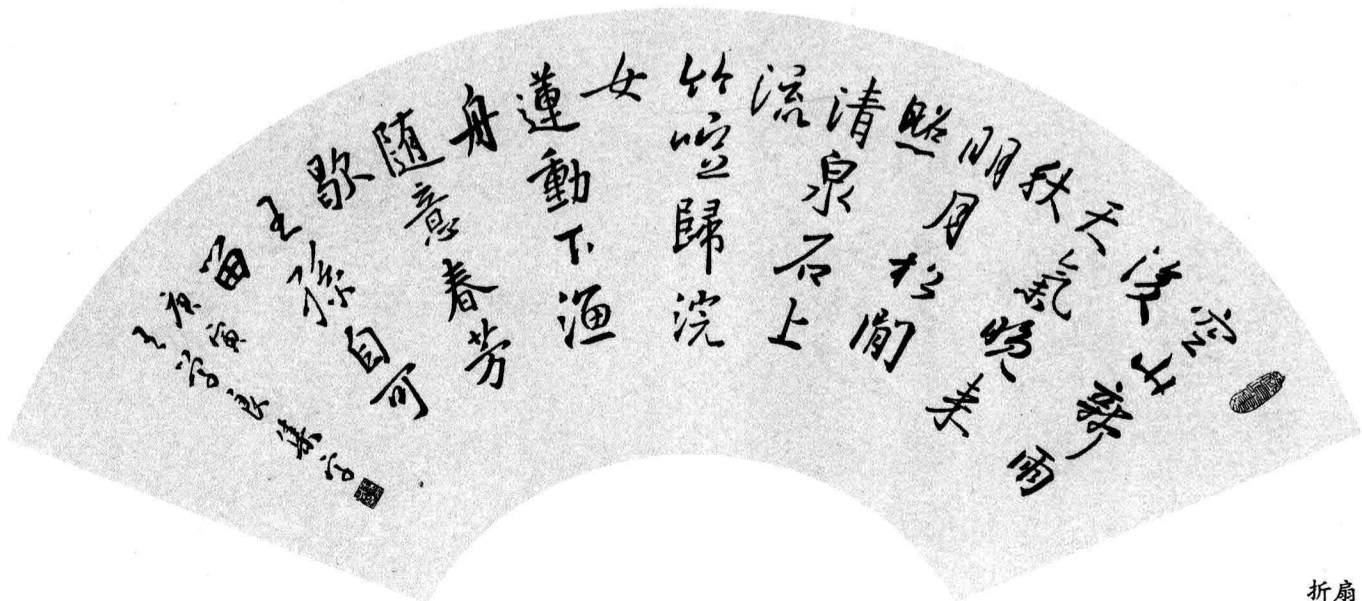 空山新雨
後
天氣晚来
秋
明月松間
照
清泉石上
流
竹喧歸浣
女
蓮動下渔
舟
随意春芳
歇
王孫自可
留
庚寅
王学良集字
折扇